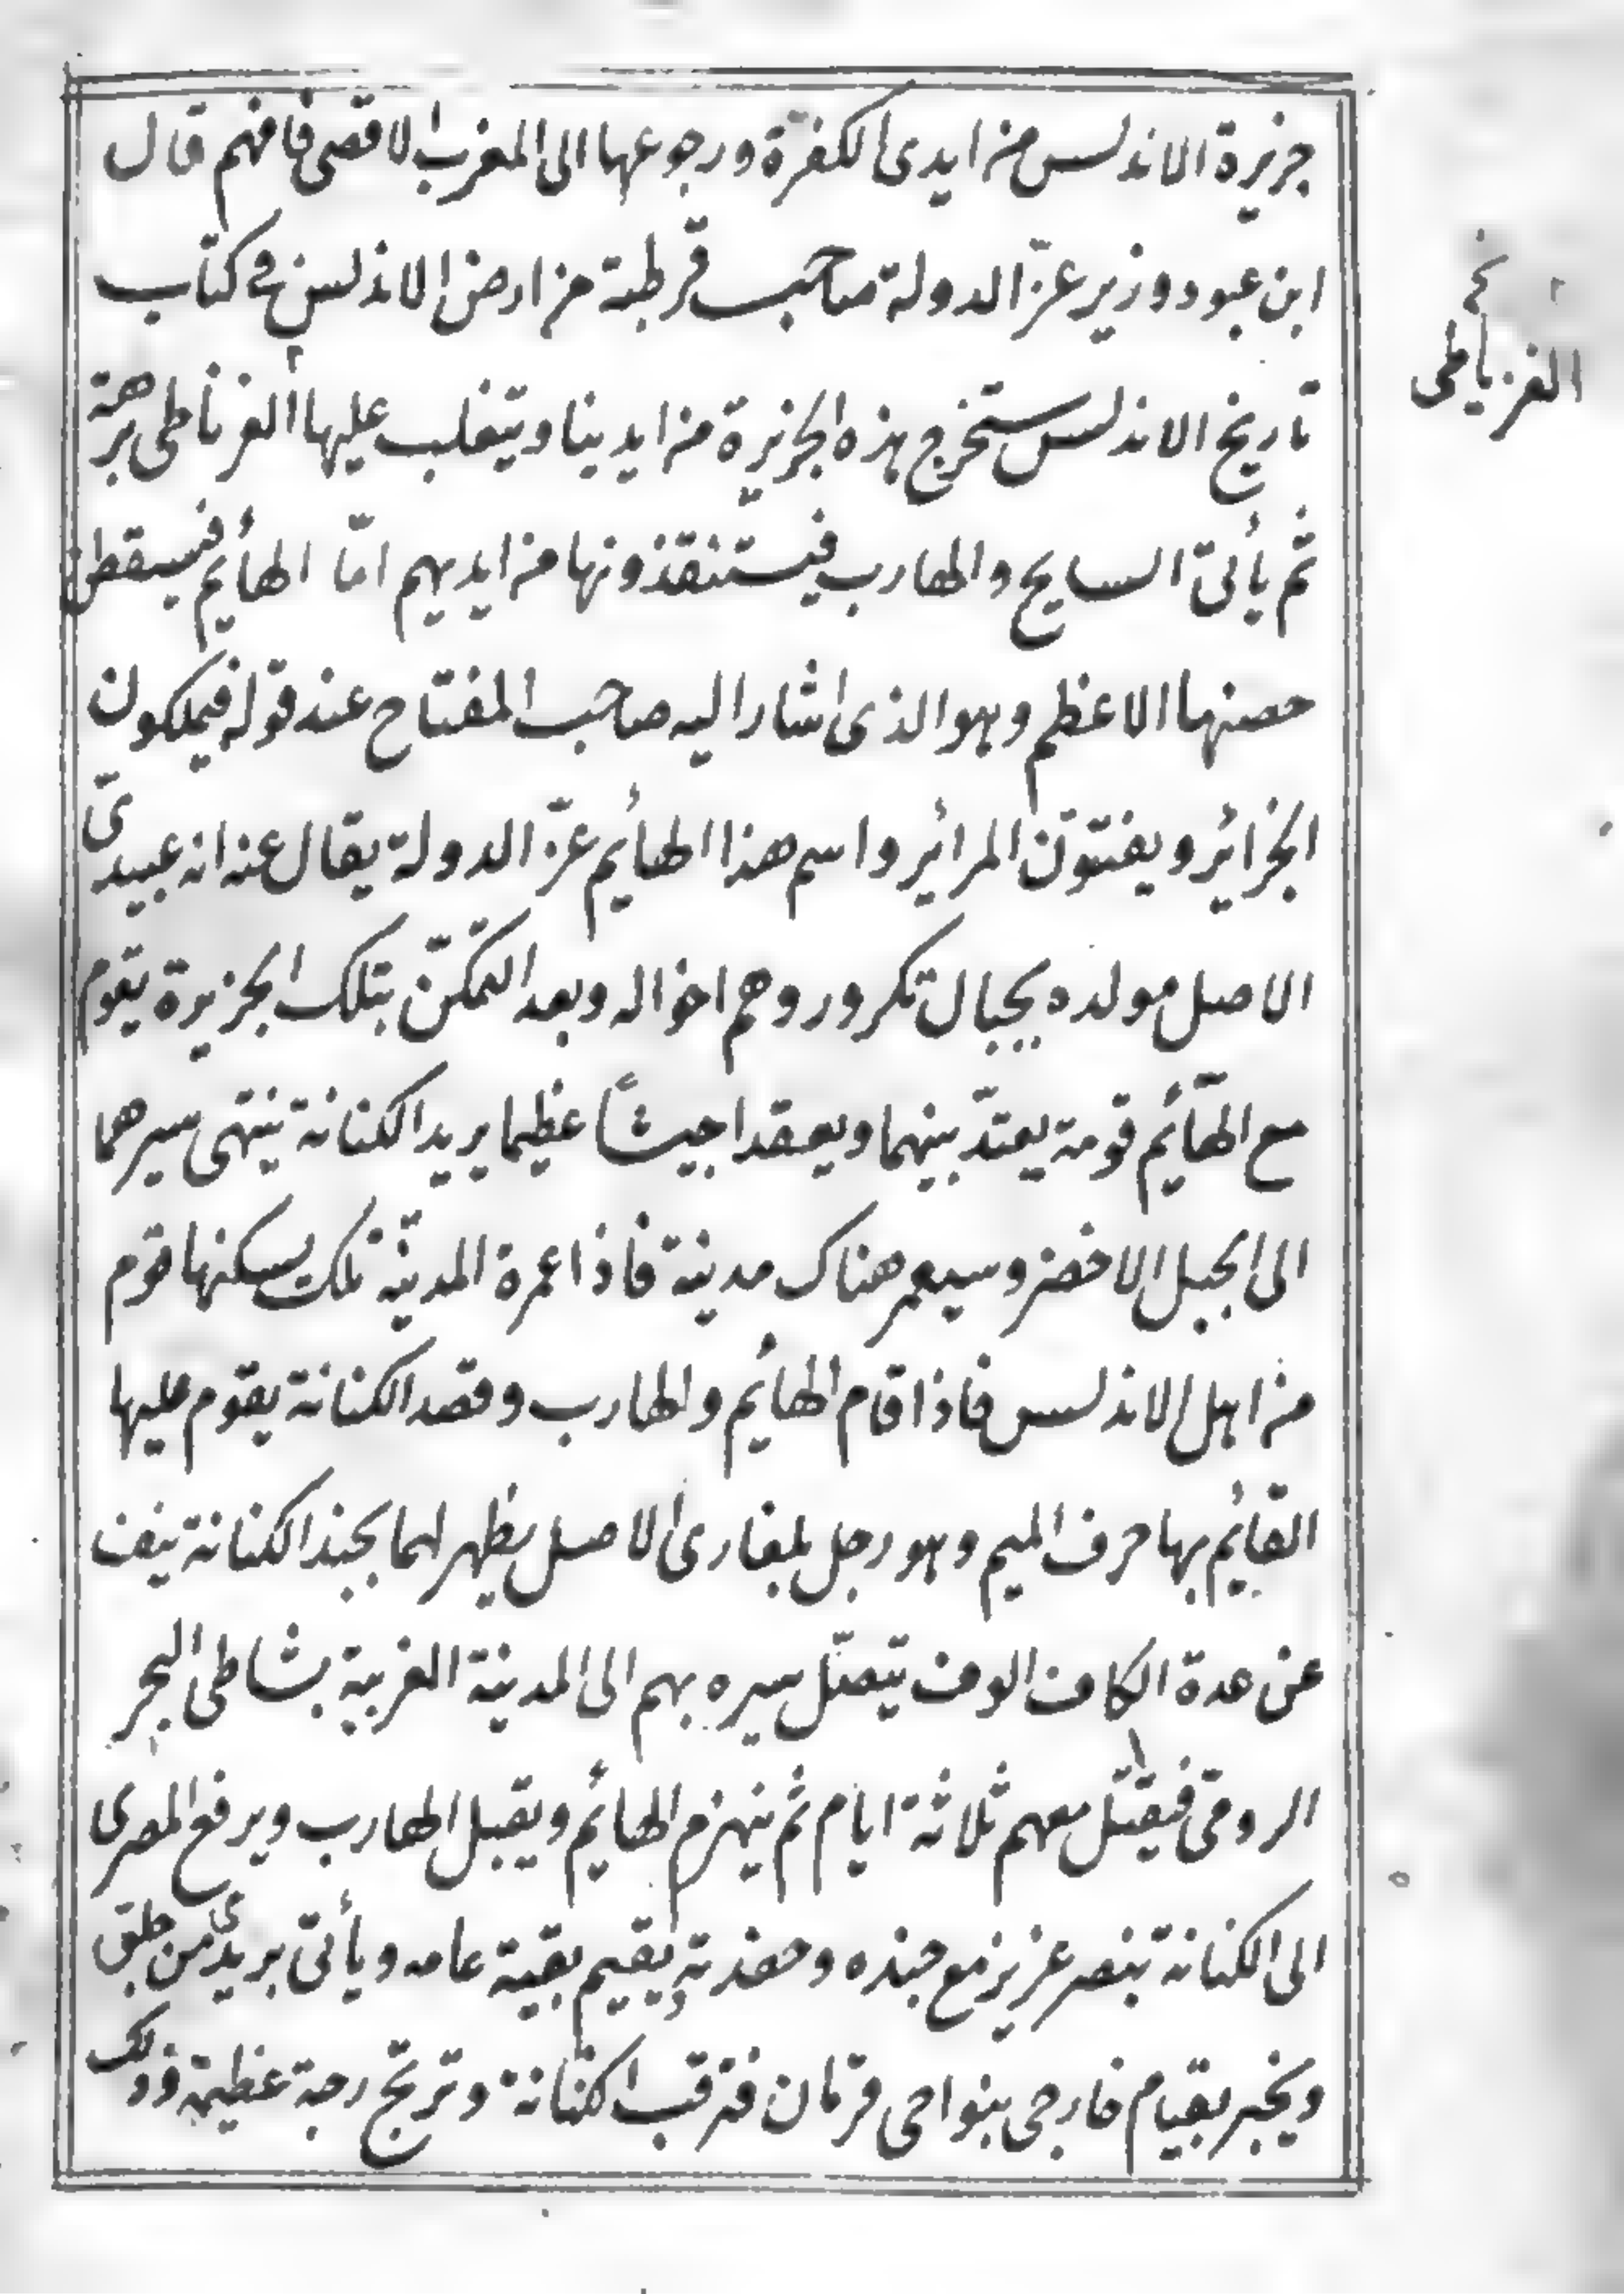 جزيرة الاندلس من ايدى الكفرة ورجوعها الى المغرب الاقصى فافهم قال
ابن عبود وزير عزّ الدولة صاحب قرطبة من ارض الاندلس فى كتاب
تاريخ الاندلس ستخرج هذه الجزيرة من ايدينا ويتغلب عليها الغرناطى برهة
ثم يأتى السايح والهارب فيستنقذونها من ايديهم امّا الهائم فيسقط
حصنها الاعظم وهو الذى اشار اليه صاحب المفتاح عند قوله فيملكون
الجزائر ويفتتون المرائر واسم هذا الهائم عزّ الدولة يقال عنه انه عبيدىّ
الاصل مولده بجبال تكرور وهم اخواله وبعد التمكّن بتلك الجزيرة يقوم
مع الهائم قومة يعتدّ بينهما ويعقدا جيشاً عظيما يريد الكنانة ينتهى سيرهما
الى الجبل الاخضر وسيعمر هناك مدينة فاذا عمرة المدينة تلك يسكنها قوم
من اهل الاندلس فاذا قام الهائم والهارب وقصد الكنانة يقوم عليها
القائم بها حرف الميم وهو رجل بلغارى الاصل يظهر لهما بجند الكنانة ينف
عن عدة الكاف الوف يتصل سيره بهم الى المدينة الغربية بشاطى البحر
الرومى فيقتتل معهم ثلاثة ايام ثم ينهزم الهائم ويقبل الهارب ويرفع المصرى
الى الكنانة بنصر عزيز مع جنده وحفدته يقيم بقية عامه ويأتى بريدىّ من جلق
ويخبر بقيام خارجى بنواحى قرمان فترقب الكنانة وترتج رجة عظيمة وذلك
نخ
الغرياطى